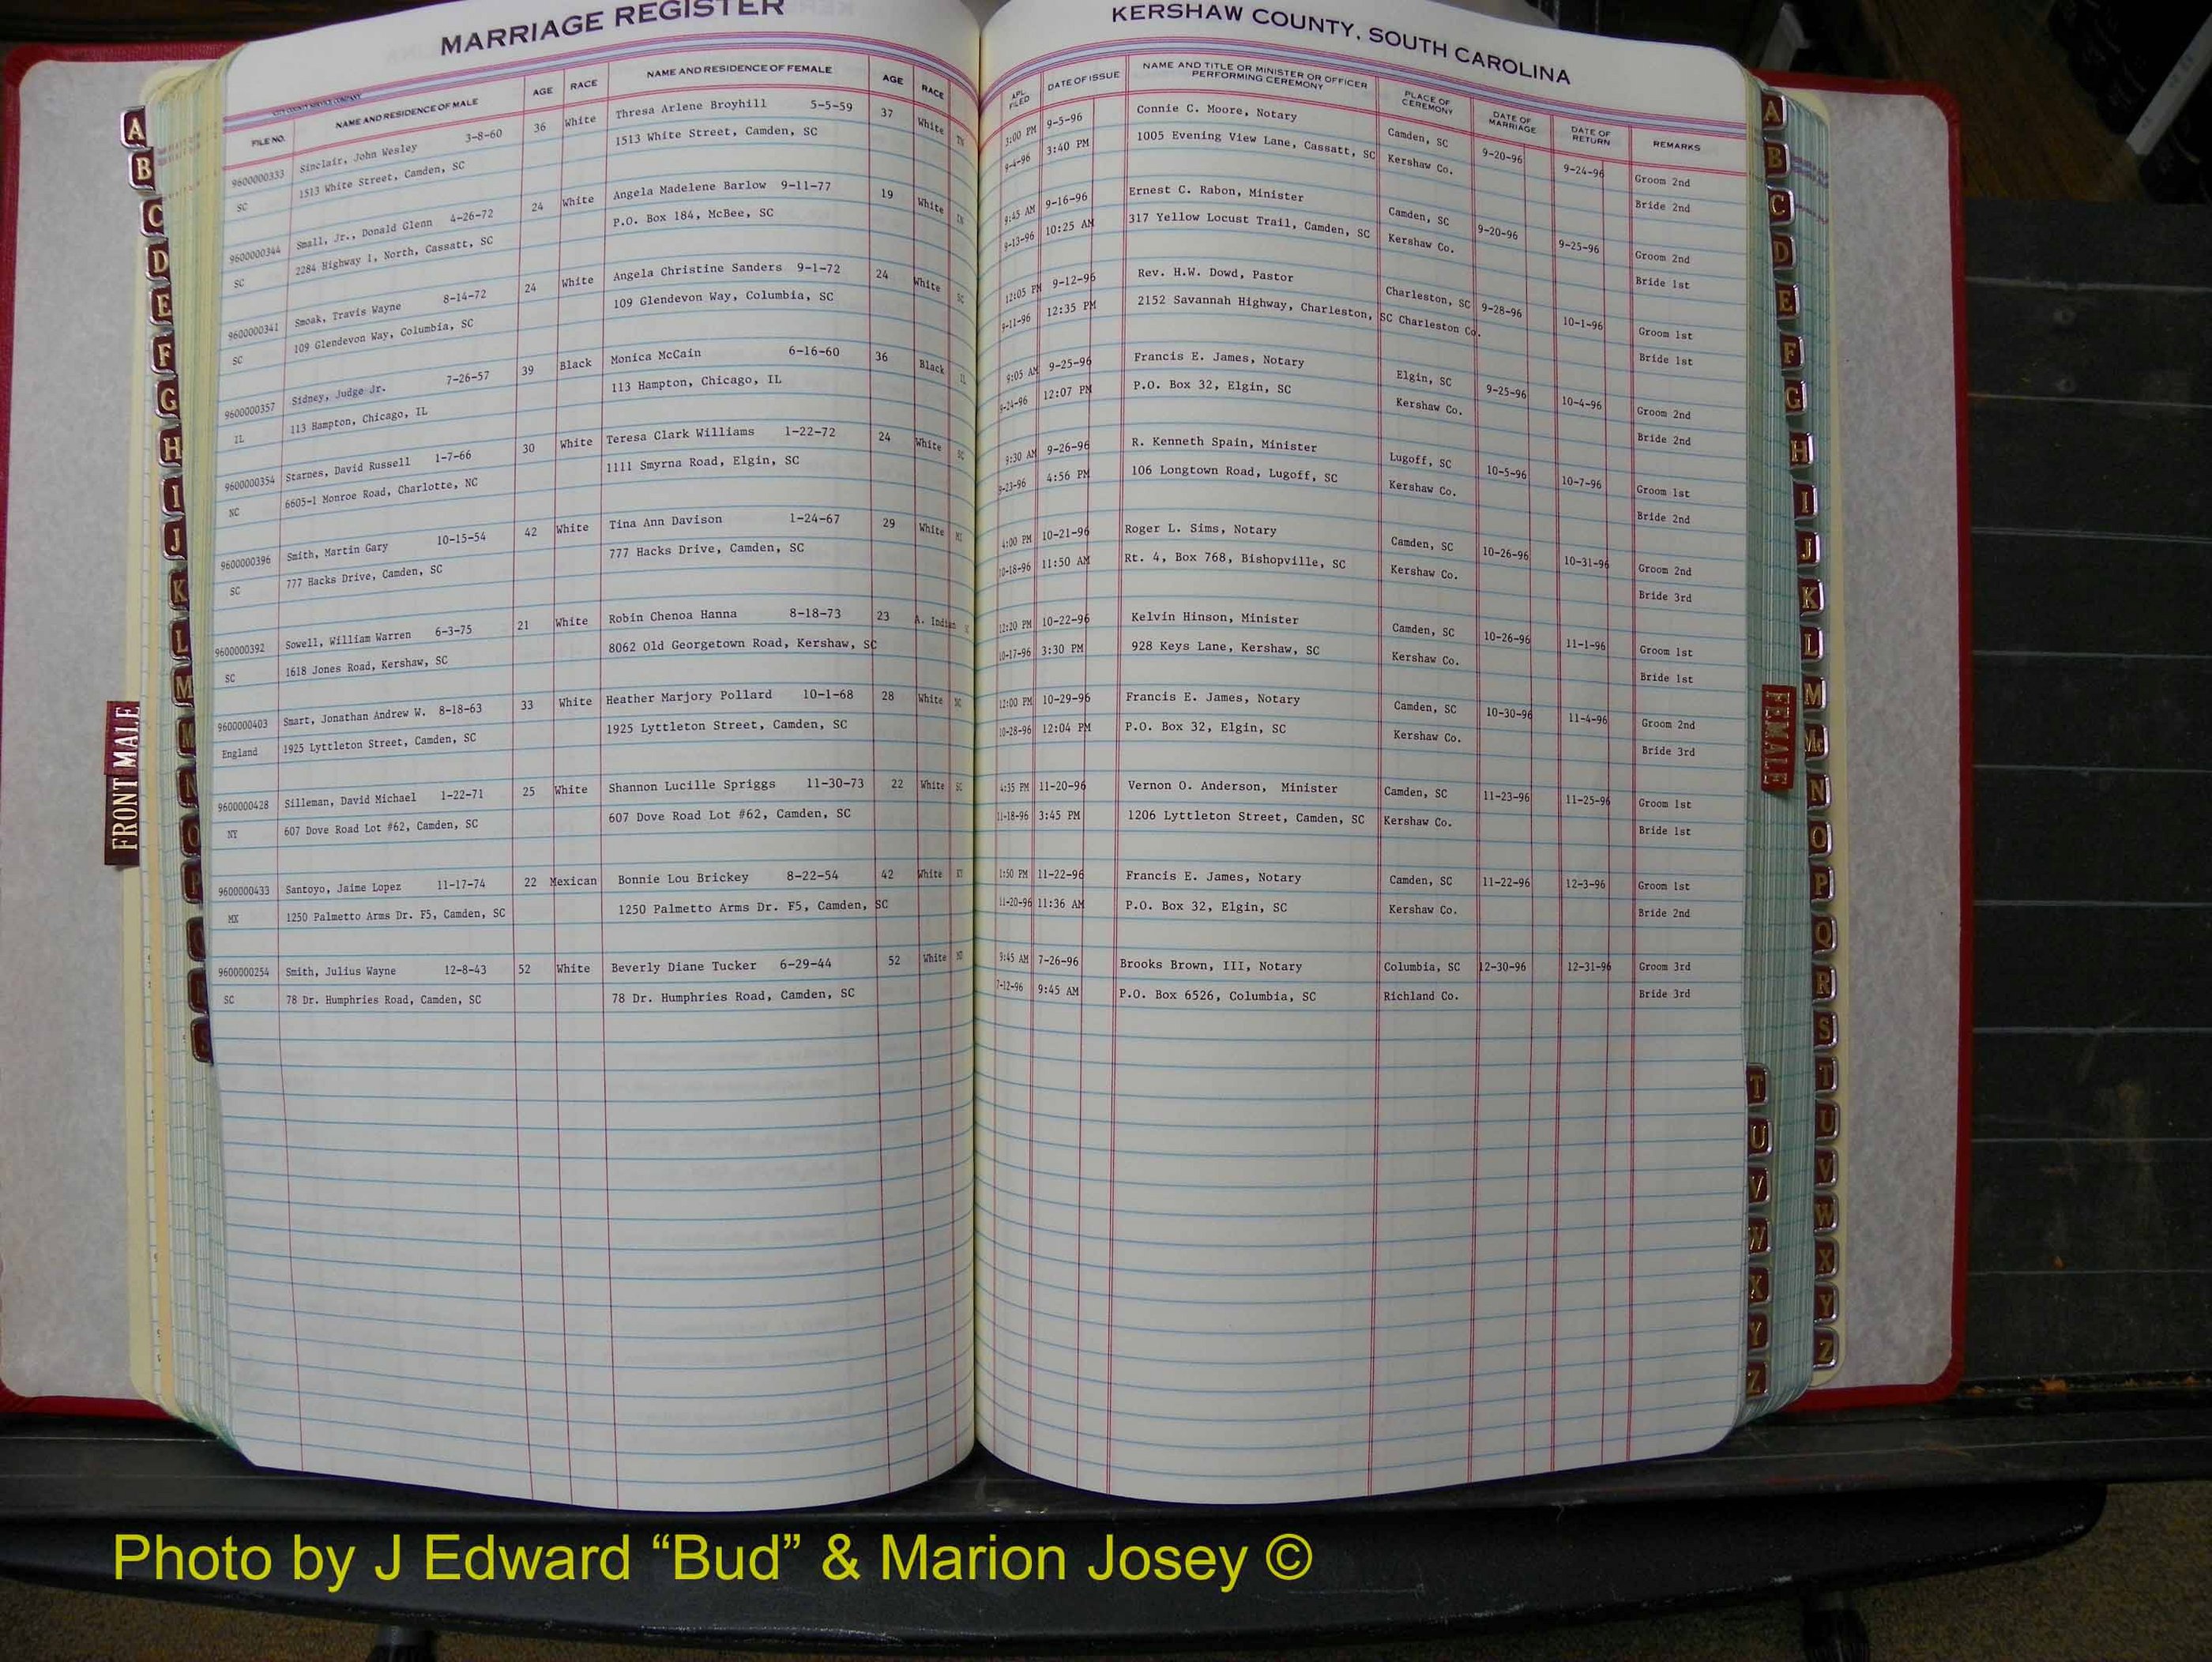 MARRIAGE REGISTER
KERSHAW COUNTY, SOUTH CAROLINA
FILE NO. NAME AND RESIDENCE OF MALE AGE RACE NAME AND RESIDENCE OF FEMALE AGE RACE APL. FILED DATE OF ISSUE NAME AND TITLE OR MINISTER OR OFFICER PERFORMING CEREMONY PLACE OF CEREMONY DATE OF MARRIAGE DATE OF RETURN REMARKS
9600000333 Sinclair, John Wesley 3-8-60 36 White Thresa Arlene Broyhill 5-5-59 37 White 3:00 PM 9-5-96 Connie C. Moore, Notary Camden, SC 9-20-96 9-24-96 Groom 2nd
SC 1513 White Street, Camden, SC 1513 White Street, Camden, SC 9-4-96 3:40 PM 1005 Evening View Lane, Cassatt, SC Kershaw Co. Bride 2nd
9600000344 Small, Jr., Donald Glenn 4-26-72 24 White Angela Madelene Barlow 9-11-77 19 White 9:45 AM 9-16-96 Ernest C. Rabon, Minister Camden, SC 9-20-96 9-25-96 Groom 2nd
SC 2284 Highway 1, North, Cassatt, SC P.O. Box 184, McBee, SC 9-13-96 10:25 AM 317 Yellow Locust Trail, Camden, SC Kershaw Co. Bride 1st
9600000341 Smoak, Travis Wayne 8-14-72 24 White Angela Christine Sanders 9-1-72 24 White SC 12:05 PM 9-12-96 Rev. H.W. Dowd, Pastor Charleston, SC 9-28-96 10-1-96 Groom 1st
SC 109 Glendevon Way, Columbia, SC 109 Glendevon Way, Columbia, SC 9-11-96 12:35 PM 2152 Savannah Highway, Charleston, SC Charleston Co. Bride 1st
9600000357 Sidney, Judge Jr. 7-26-57 39 Black Monica McCain 6-16-60 36 Black IL 9:05 AM 9-25-96 Francis E. James, Notary Elgin, SC 9-25-96 10-4-96 Groom 2nd
IL 113 Hampton, Chicago, IL 113 Hampton, Chicago, IL 9-24-96 12:07 PM P.O. Box 32, Elgin, SC Kershaw Co. Bride 2nd
9600000354 Starnes, David Russell 1-7-66 30 White Teresa Clark Williams 1-22-72 24 White SC 9:30 AM 9-26-96 R. Kenneth Spain, Minister Lugoff, SC 10-5-96 10-7-96 Groom 1st
NC 6605-1 Monroe Road, Charlotte, NC 1111 Smyrna Road, Elgin, SC 9-23-96 4:56 PM 106 Longtown Road, Lugoff, SC Kershaw Co. Bride 2nd
9600000396 Smith, Martin Gary 10-15-54 42 White Tina Ann Davison 1-24-67 29 White 4:00 PM 10-21-96 Roger L. Sims, Notary Camden, SC 10-26-96 10-31-96 Groom 2nd
SC 777 Hacks Drive, Camden, SC 777 Hacks Drive, Camden, SC 10-18-96 11:50 AM Rt. 4, Box 768, Bishopville, SC Kershaw Co. Bride 3rd
9600000392 Sowell, William Warren 6-3-75 21 White Robin Chenoa Hanna 8-18-73 23 A. Indian 12:20 PM 10-22-96 Kelvin Hinson, Minister Camden, SC 10-26-96 11-1-96 Groom 1st
SC 1618 Jones Road, Kershaw, SC 8062 Old Georgetown Road, Kershaw, SC 10-17-96 3:30 PM 928 Keys Lane, Kershaw, SC Kershaw Co. Bride 1st
9600000403 Smart, Jonathan Andrew W. 8-18-63 33 White Heather Marjory Pollard 10-1-68 28 White 12:00 PM 10-29-96 Francis E. James, Notary Camden, SC 10-30-96 11-4-96 Groom 2nd
England 1925 Lyttleton Street, Camden, SC 1925 Lyttleton Street, Camden, SC 10-28-96 12:04 PM P.O. Box 32, Elgin, SC Kershaw Co. Bride 3rd
9600000428 Silleman, David Michael 1-22-71 25 White Shannon Lucille Spriggs 11-30-73 22 White SC 4:35 PM 11-20-96 Vernon O. Anderson, Minister Camden, SC 11-23-96 11-25-96 Groom 1st
NY 607 Dove Road Lot #62, Camden, SC 607 Dove Road Lot #62, Camden, SC 11-18-96 3:45 PM 1206 Lyttleton Street, Camden, SC Kershaw Co. Bride 1st
9600000433 Santoyo, Jaime Lopez 11-17-74 22 Mexican Bonnie Lou Brickey 8-22-54 42 White 1:50 PM 11-22-96 Francis E. James, Notary Camden, SC 11-22-96 12-3-96 Groom 1st
MX 1250 Palmetto Arms Dr. F5, Camden, SC 1250 Palmetto Arms Dr. F5, Camden, SC 11-20-96 11:36 AM P.O. Box 32, Elgin, SC Kershaw Co. Bride 2nd
9600000254 Smith, Julius Wayne 12-8-43 52 White Beverly Diane Tucker 6-29-44 52 White 9:45 AM 7-26-96 Brooks Brown, III, Notary Columbia, SC 12-30-96 12-31-96 Groom 3rd
SC 78 Dr. Humphries Road, Camden, SC 78 Dr. Humphries Road, Camden, SC 7-12-96 9:45 AM P.O. Box 6526, Columbia, SC Richland Co. Bride 3rd
A
B
C
D
E
F
G
H
I
J
K
L
M
N
O
P
FRONT MALE
A
B
C
D
E
F
G
H
I
J
K
L
M
Mc
N
O
P
Q
R
S
T
U
V
W
X
Y
Z
FEMALE
T
U
V
W
X
Y
Z
Photo by J Edward “Bud” & Marion Josey ©